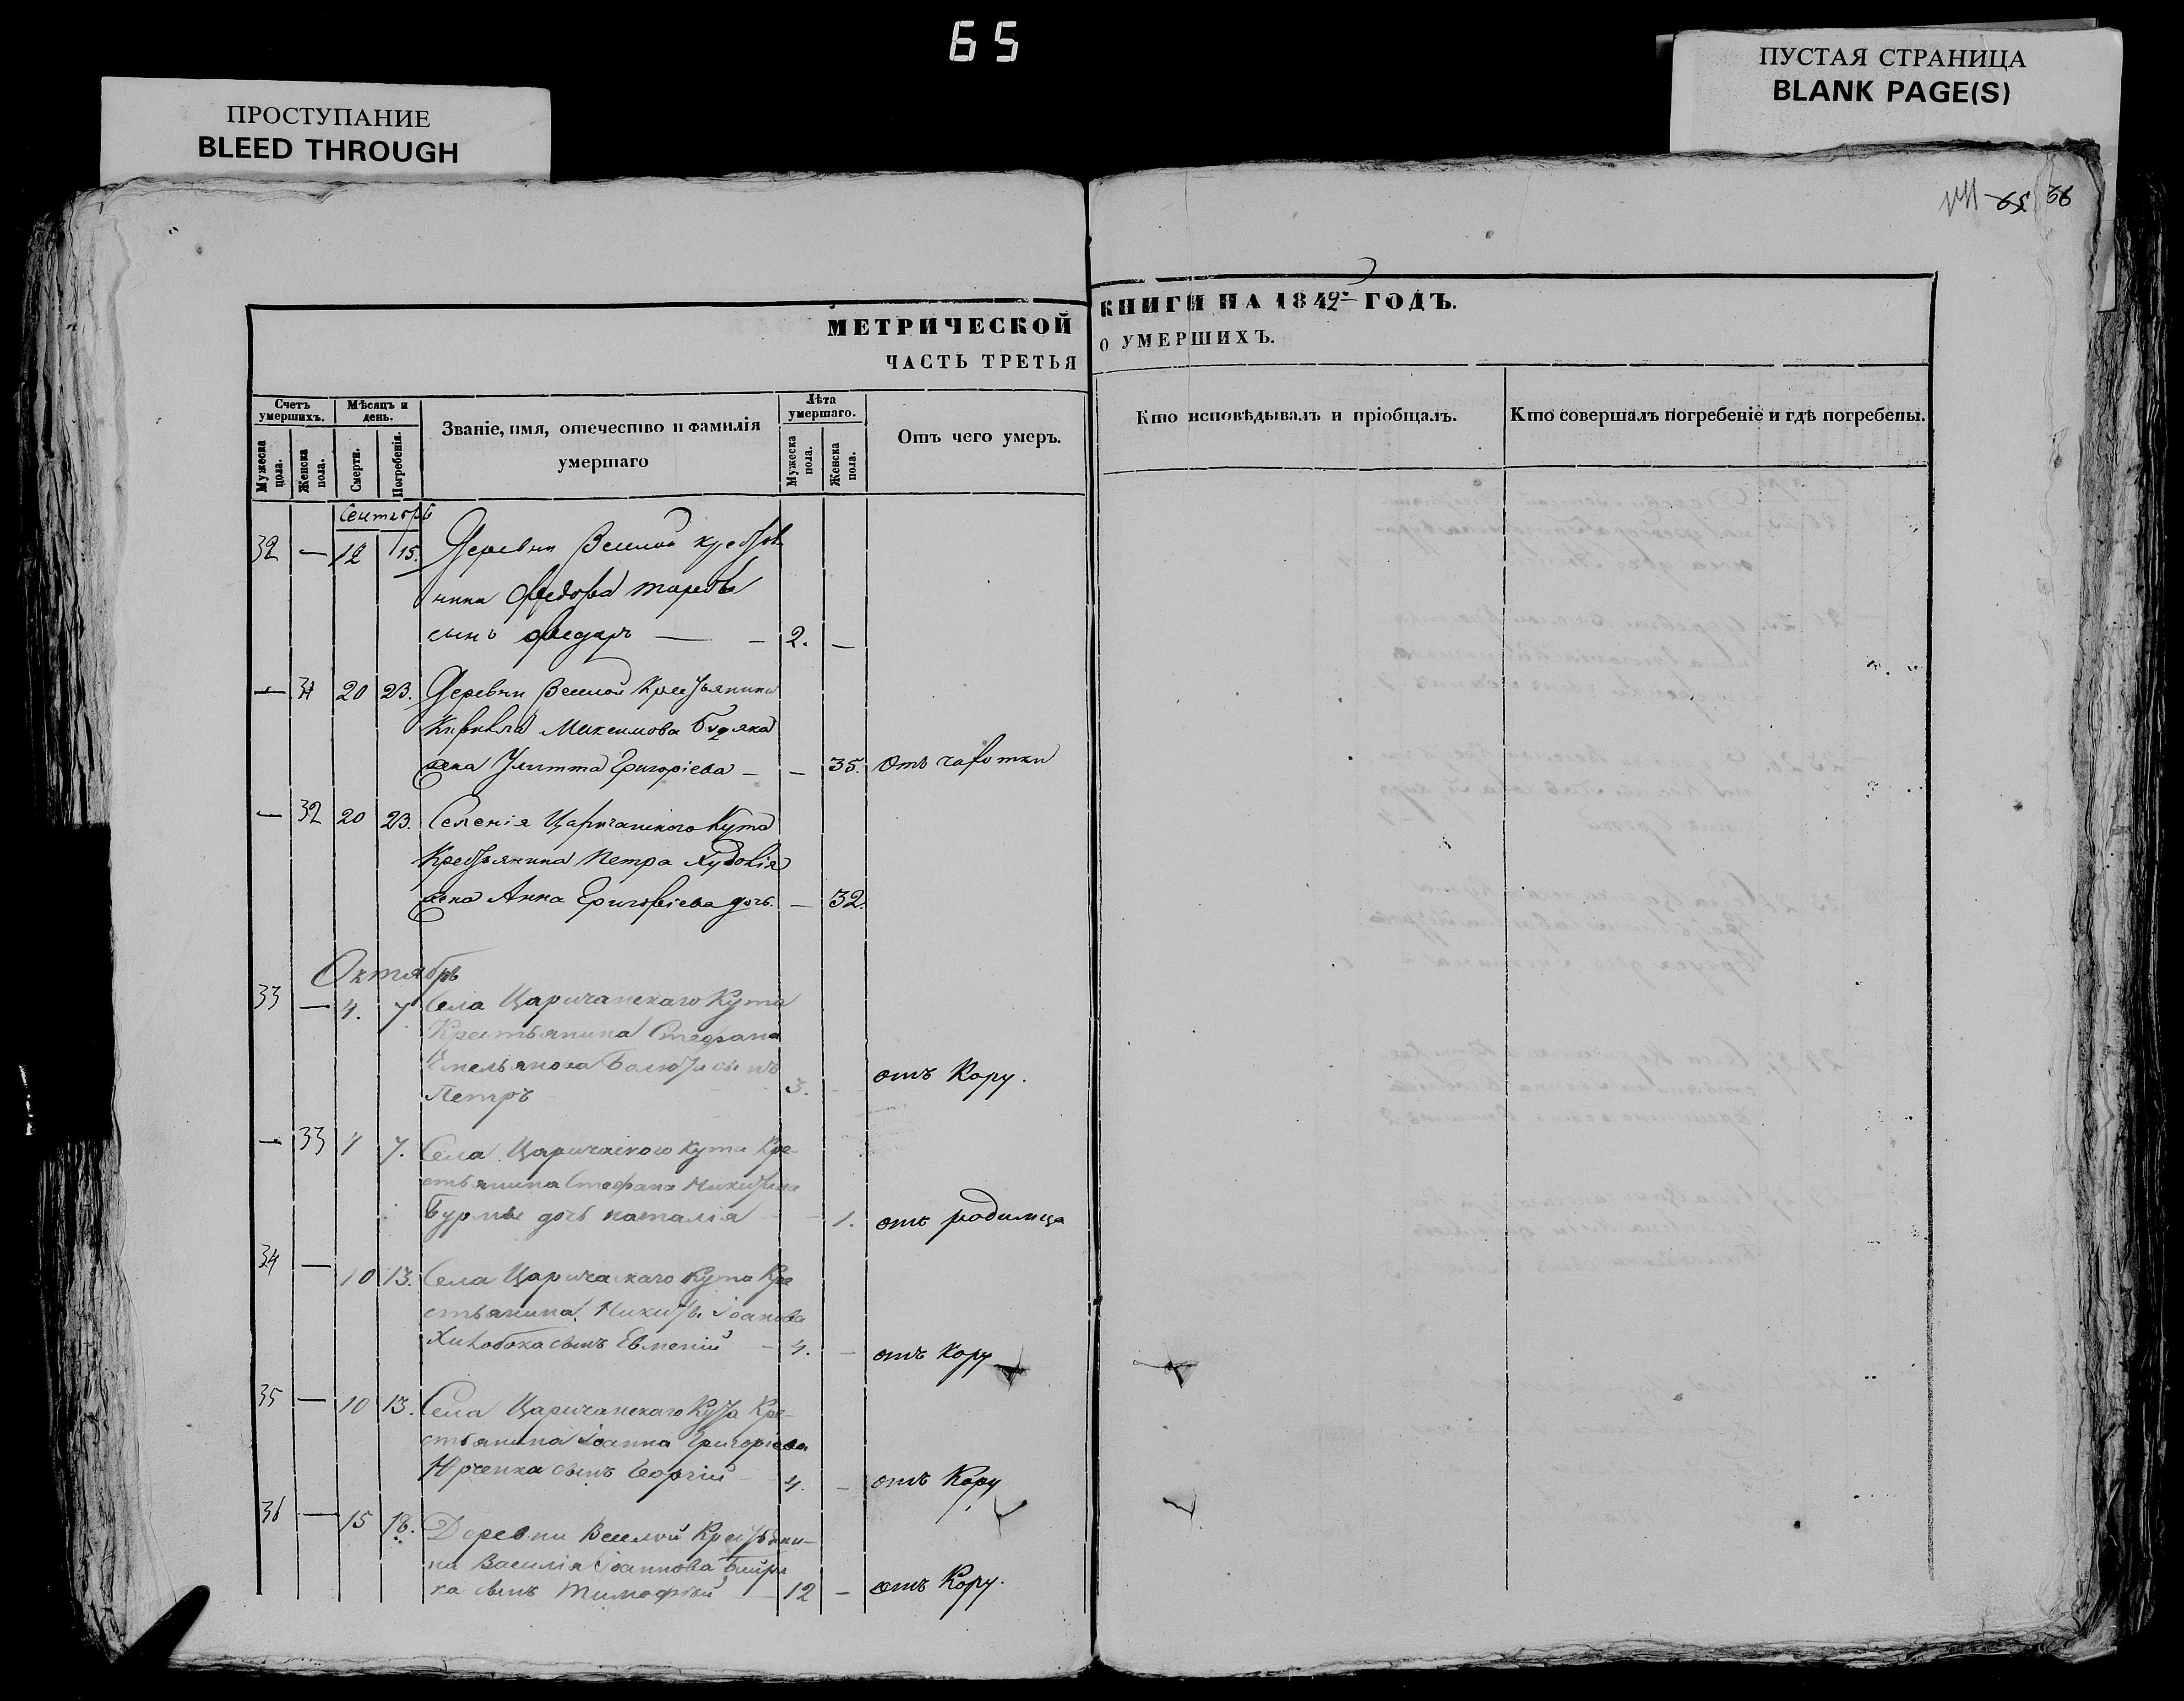 65
ПРОСТУПАНИЕ
BLEED THROUGH
ПУСТАЯ СТРАНИЦА
BLANK PAGE(S)
65 36
МЕТРИЧЕСКОЙ КНИГИ НА 1842 ГОДЪ.
ЧАСТЬ ТРЕТЬЯ О УМЕРШИХЪ.
Счетъ умершихъ.
Мужеска пола.
Женска пола.
Мѣсяцъ и день.
Смерти.
Погребенія.
Званіе, имя, отечество и фамилія
умершаго
Лѣта умершаго.
Мужеска пола.
Женска пола.
Отъ чего умеръ.
Кто исповѣдывалъ и пріобщалъ.
Кто совершалъ погребеніе и гдѣ погребены.
Сентябрь
32 — 12 15. Деревни Веселой крестья
нина Федора
сынъ — — 2. —
— 31 20 23. Деревни Веселой Крестьянина
Кирила Максимова Будяка
жена Улитта Григоріева — — 35. Отъ чахотки
— 32 20 23. Селенія Царичанского Кута
Крестьянина Петра
жена Анна Григоріева дочь. — 32.
Октябрь
33 — 4. 7 Села Царичанскаго Кута
Крестьянина Стефана
Емельянова сынъ
Петръ 3. - отъ Кору.
— 33 4 7. Села Царичаского Кута Кре-
стьянина Стефана Никиты
дочь наталія - 1. отъ родимца
34 — 10 13. Села Царичаскаго Кута Кре
стьянина Никиты Іоанова
сынъ Евмений - 4. - отъ Кору
35 — 10 13. Села Царичанскаго Кута Кре-
стьянина Іоанна Григоріева
Юрченка сынъ Георгій 4. - отъ Кору
36 — 15 18. Деревни Веселой Крестьяни-
на Василія Іоаннова
сынъ Тимофѣй - 12 - отъ Кору.